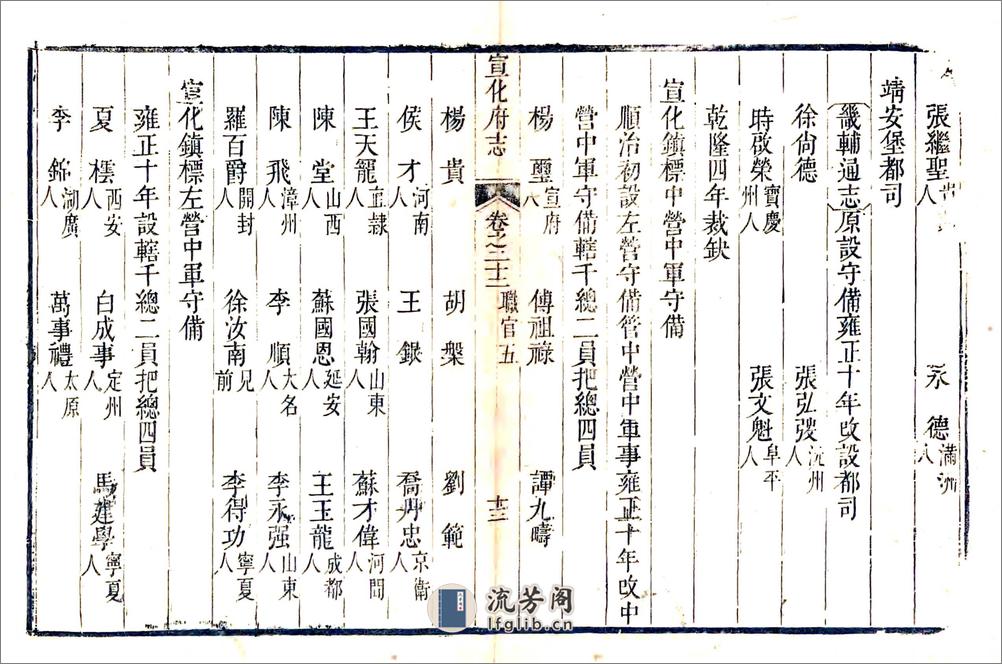 張繼聖人 永德滿洲人
靖安堡都司
畿輔通志原設守備雍正十年改設都司
徐尚德 張弘弢沅州人
時啟榮寶慶州人 張文魁阜平人
乾隆四年裁缺
宣化鎮標中營中軍守備
順治初設左營守備管中營中軍事雍正十年改中
營中軍守備轄千總二員把總四員
楊璽宣府人 傅祖祿 譚九疇
宣化府志 卷之二十二 職官五 十三
楊貴 胡槃 劉範
侯才河南人 王鎄 喬丹忠京衛人
王天寵直隸人 張國翰山東人 蘇才偉河間人
陳堂山西人 蘇國恩延安人 王玉龍成都人
陳飛漳州人 李順大名人 李永强山東人
羅百爵開封人 徐汝南見前 李得功寧夏人
宣化鎮標左營中軍守備
雍正十年設轄千總二員把總四員
夏樰西安人 白成事定州人 馬建學寧夏人
李錦湖廣人 萬事禮太原人
流芳阁
lfglib.cn